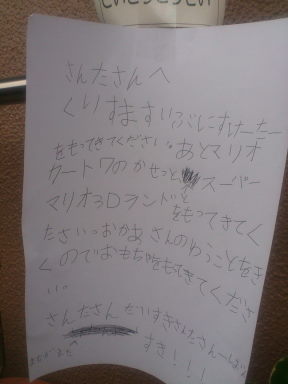 さんたさんへ
くりすますいぶにすけーたー
をもってきてください。あとマリオ
カート7のかせっと スーパー
マリオ3Dランドと
をもってきてく
ださいっおかあさんのゆうことをき
くのでおもちゃをもってきてくださ
い。
さんたさんだいすきさんたさん
すき!!!